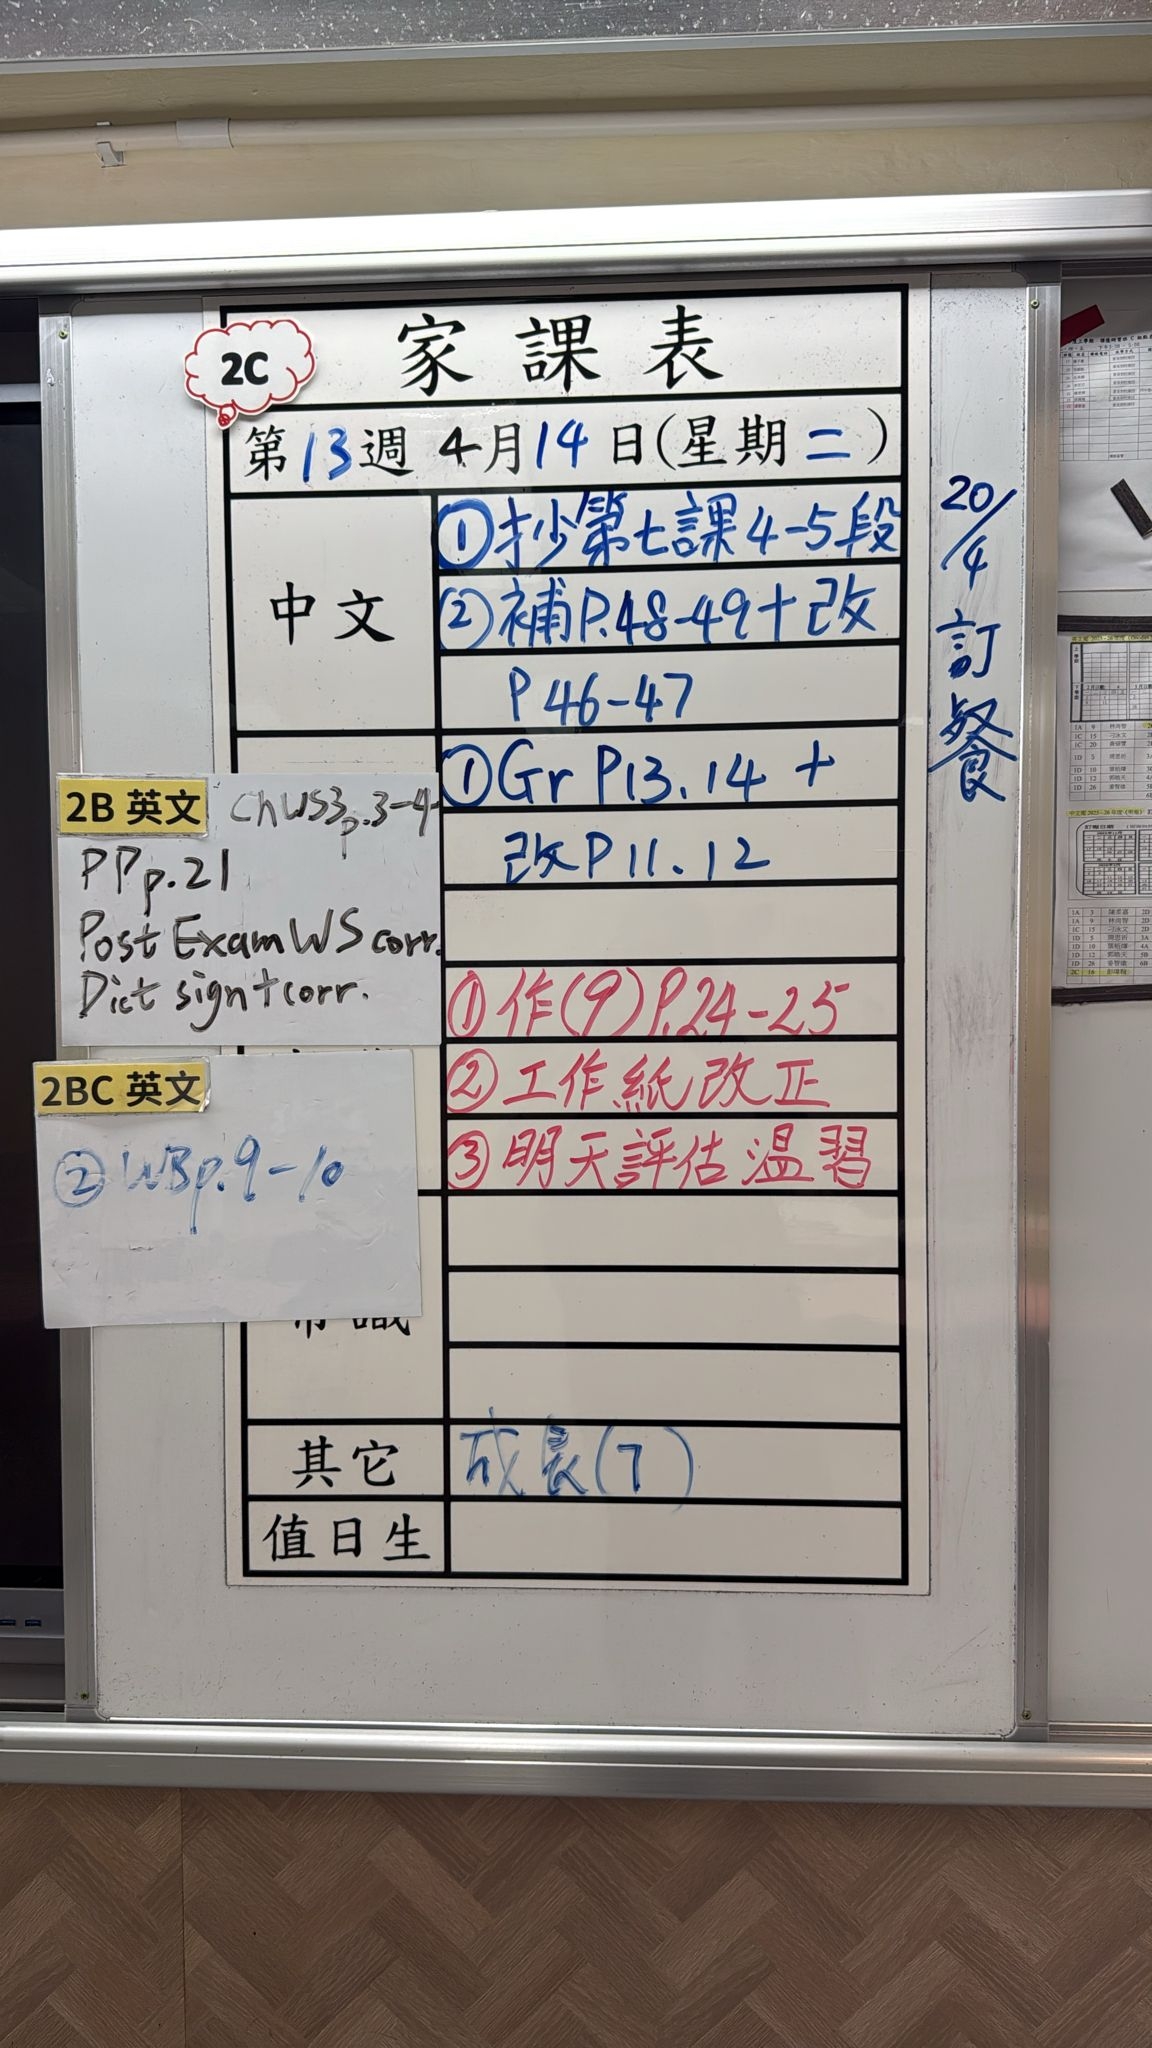 家課表
2C
第13週 4月14日(星期二)
中文
①抄第七課4-5段
②補P.48-49+改
P 46-47
①Gr P13.14 +
改P 11.12
①作(9)P.24-25
②工作紙改正
③明天評估溫習
常識
其它
成長(7)
值日生
2B 英文
Ch WS3 p.3-4
PP p.21
Post Exam WS corr.
Dict sign+corr.
2BC 英文
② WB p.9-10
20/4 訂餐